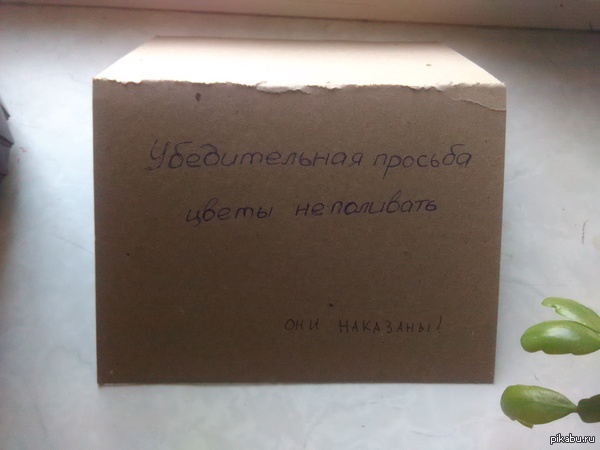 Убедительная просьба
цветы не поливать
ОНИ НАКАЗАНЫ!
pikabu.ru